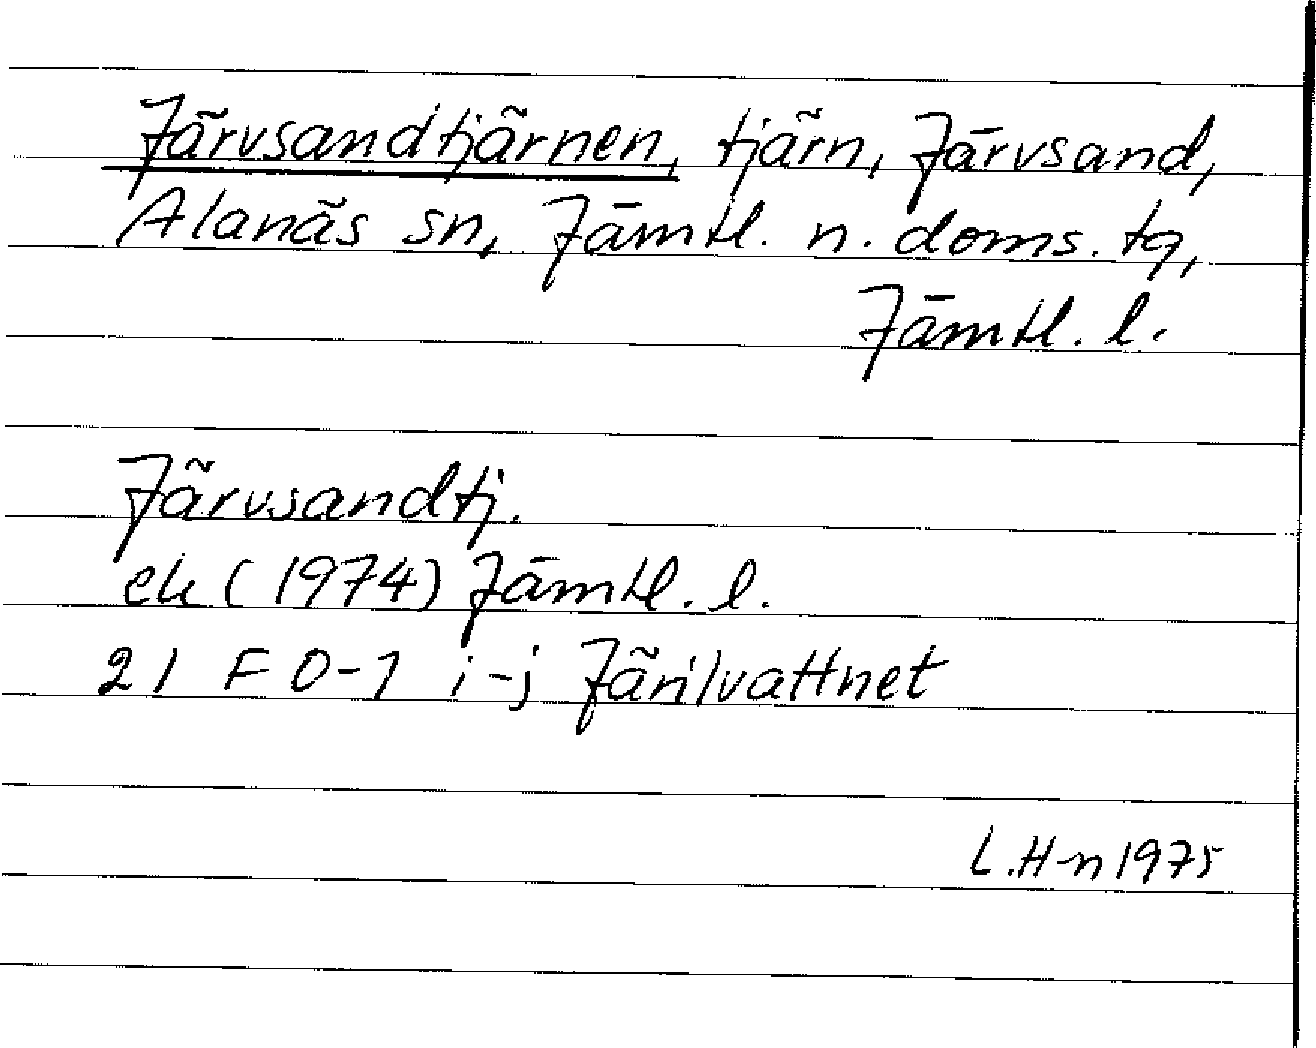 Järvsandtjärnen, tjärn, Järvsand,
Alanäs sn, Jämtl. n. doms. tg,
Jämtl. l.
Järvsandtj.
ek (1974) Jämtl. l.
21 F 0-1 i-j Järilvattnet
L.H-n 1975